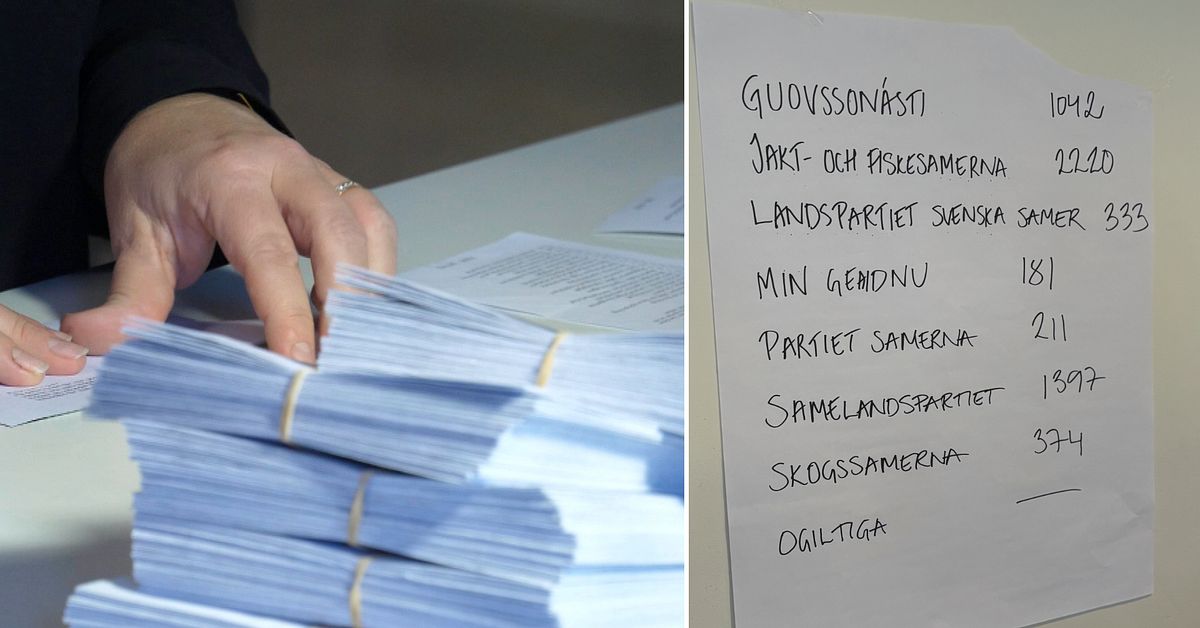 GUOVSSONÁSTI 1042
JAKT- OCH FISKESAMERNA 2220
LANDSPARTIET SVENSKA SAMER 333
MIN GEAIDNU 181
PARTIET SAMERNA 211
SAMELANDSPARTIET 1397
SKOGSSAMERNA 374
OGILTIGA